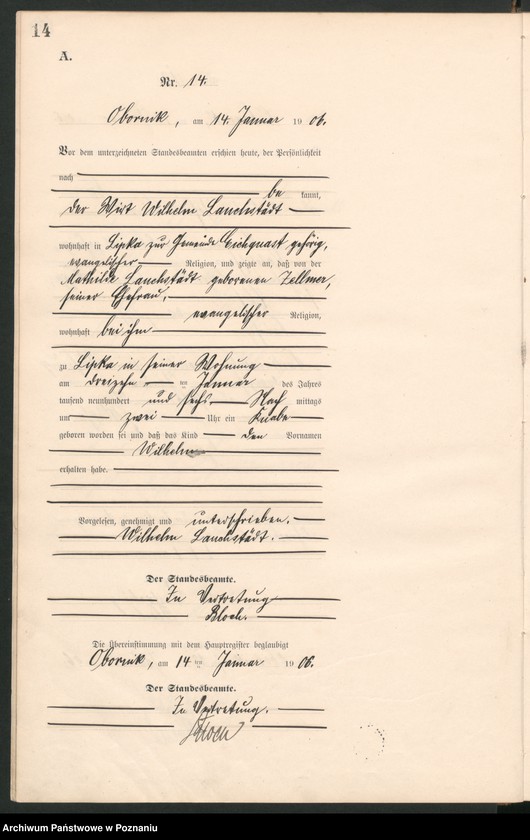 14
A.
Nr. 14.
Obornik, am 14. Januar 19 06.
Vor dem unterzeichneten Standesbeamten erschien heute, der Persönlichkeit
nach
be kannt,
der Wirt Wilhelm Lauchstädt
wohnhaft in Lipka zur Gemeinde Eichquast gehörig,
evangelischer Religion, und zeigte an, daß von der
Mathilde Lauchstädt geborenen Zellmer,
seiner Ehefrau,
evangelischer Religion,
wohnhaft bei ihm
zu Lipka in seiner Wohnung
am dreizehn ten Januar des Jahres
tausend neunhundert und sechs Nach mittags
um zwei Uhr ein Knabe
geboren worden sei und daß das Kind den Vornamen
Wilhelm
erhalten habe.
Vorgelesen, genehmigt und unterschrieben.
Wilhelm Lauchstädt.
Der Standesbeamte.
In Vertretung
Bloch.
Die Übereinstimmung mit dem Hauptregister beglaubigt
Obornik, am 14 ten Januar 19 06.
Der Standesbeamte.
In Vertretung.
Bloch
Archiwum Państwowe w Poznaniu